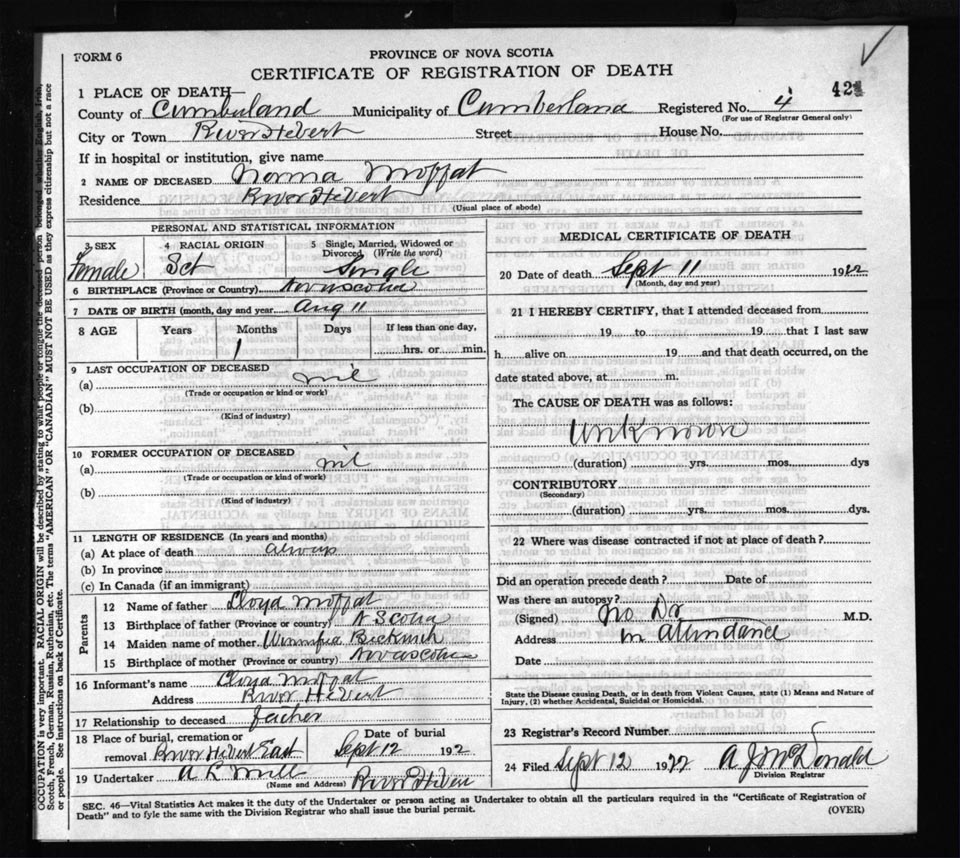 FORM 6
PROVINCE OF NOVA SCOTIA
CERTIFICATE OF REGISTRATION OF DEATH
421
1 PLACE OF DEATH—
County of Cumberland Municipality of Cumberland Registered No. 4
(For use of Registrar General only)
City or Town River Hebert Street House No.
If in hospital or institution, give name
2 NAME OF DECEASED Norma Moffat
Residence River Hebert
(Usual place of abode)
PERSONAL AND STATISTICAL INFORMATION
3 SEX 4 RACIAL ORIGIN 5 Single, Married, Widowed or Divorced, (Write the word)
Female Sct Single
6 BIRTHPLACE (Province or Country) Novascotia
7 DATE OF BIRTH (month, day and year) Aug 11
8 AGE Years Months Days If less than one day,
1 hrs. or min.
9 LAST OCCUPATION OF DECEASED
(a) nil
(Trade or occupation or kind or work)
(b)
(Kind of industry)
10 FORMER OCCUPATION OF DECEASED
(a) nil
(Trade or occupation or kind of work)
(b)
(Kind of industry)
11 LENGTH OF RESIDENCE (In years and months)
(a) At place of death always
(b) In province
(c) In Canada (if an immigrant)
Parents
12 Name of father Cloyd Moffat
13 Birthplace of father (Province or country) N Scotia
14 Maiden name of mother
15 Birthplace of mother (Province or country) Novascotia
16 Informant's name Cloyd Moffat
Address River Hebert
17 Relationship to deceased father
18 Place of burial, cremation or removal River Hebert East
Date of burial Sept 12 192
19 Undertaker A L Mills River Heber
(Name and Address)
MEDICAL CERTIFICATE OF DEATH
20 Date of death Sept 11 1922
(Month, day and year)
21 I HEREBY CERTIFY, that I attended deceased from
19 to 19 that I last saw
h alive on 19 and that death occurred, on the
date stated above, at m.
The CAUSE OF DEATH was as follows:
Unknown
(duration) yrs. mos. dys
CONTRIBUTORY
(Secondary)
(duration) yrs. mos. dys.
22 Where was disease contracted if not at place of death?
Did an operation precede death? Date of
Was there an autopsy?
(Signed) No Dr M.D.
Address in attendance
Date
State the Disease causing Death, or in death from Violent Causes, state (1) Means and Nature of
Injury, (2) whether Accidental, Suicidal or Homicidal.
23 Registrar's Record Number
24 Filed Sept 12 1922 A J McDonald
Division Registrar
SEC. 46—Vital Statistics Act makes it the duty of the Undertaker or person acting as Undertaker to obtain all the particulars required in the "Certificate of Registration of
Death" and to fyle the same with the Division Registrar who shall issue the burial permit.
(OVER)
OCCUPATION is very important. RACIAL ORIGIN will be described by stating to what people or tongue the deceased person belonged whether English, Irish,
Scotch, French, German, Russian, Ruthenian, etc. The terms "AMERICAN" OR "CANADIAN" MUST NOT BE USED as they express citizenship but not a race
or people. See instructions on back of Certificate.